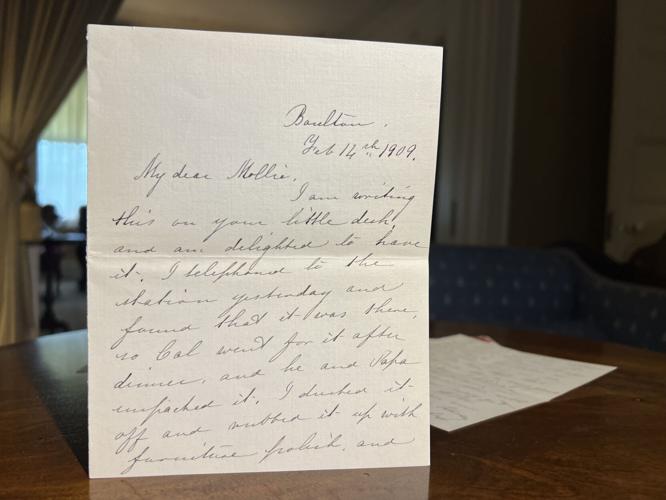 Boulton.
Feb 14th 1909.
My dear Mollie,
I am writing
this on your little desk,
and am delighted to have
it. I telephoned to the
station yesterday and
found that it was there,
so Cal went for it after
dinner, and he and Papa
unpacked it. I dusted it
off and rubbed it up with
furniture polish, and